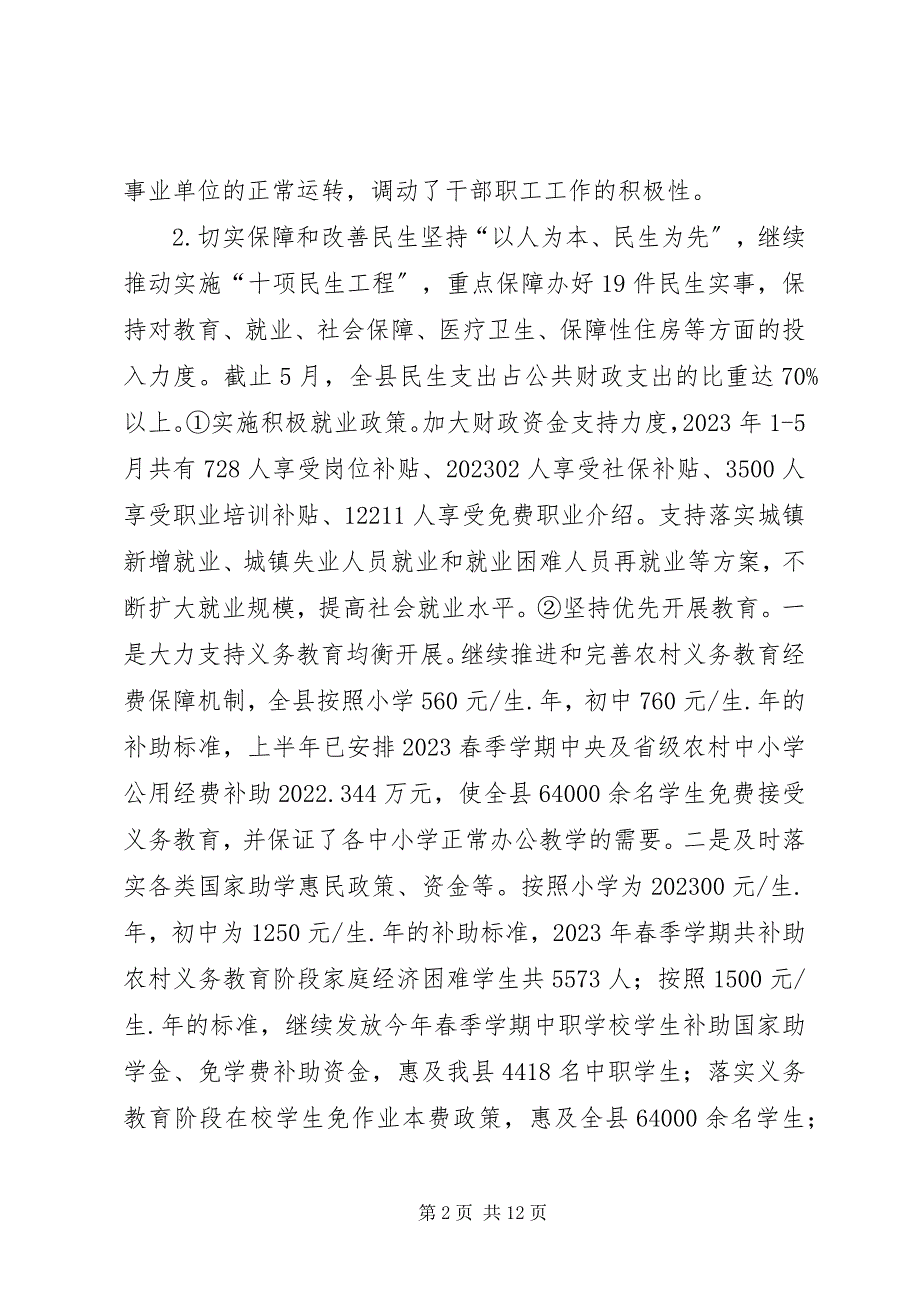 事业单位的正常运转，调动了干部职工工作的积极性。
2.切实保障和改善民生坚持“以人为本、民生为先〞，继续
推动实施“十项民生工程〞，重点保障办好 19 件民生实事，保
持对教育、就业、社会保障、医疗卫生、保障性住房等方面的投
入力度。截止 5 月，全县民生支出占公共财政支出的比重达 70%
以上。①实施积极就业政策。加大财政资金支持力度，2023 年 1-5
月共有 728 人享受岗位补贴、202302 人享受社保补贴、3500 人
享受职业培训补贴、12211 人享受免费职业介绍。支持落实城镇
新增就业、城镇失业人员就业和就业困难人员再就业等方案，不
断扩大就业规模，提高社会就业水平。②坚持优先开展教育。一
是大力支持义务教育均衡开展。继续推进和完善农村义务教育经
费保障机制，全县按照小学 560 元/生.年，初中 760 元/生.年的
补助标准，上半年已安排 2023 春季学期中央及省级农村中小学
公用经费补助 2022.344 万元，使全县 64000 余名学生免费接受
义务教育，并保证了各中小学正常办公教学的需要。二是及时落
实各类国家助学惠民政策、资金等。按照小学为 202300 元/生.
年，初中为 1250 元/生.年的补助标准，2023 年春季学期共补助
农村义务教育阶段家庭经济困难学生共 5573 人；按照 1500 元/
生.年的标准，继续发放今年春季学期中职学校学生补助国家助
学金、免学费补助资金，惠及我县 4418 名中职学生；落实义务
教育阶段在校学生免作业本费政策，惠及全县 64000 余名学生；
第 2 页 共 12 页